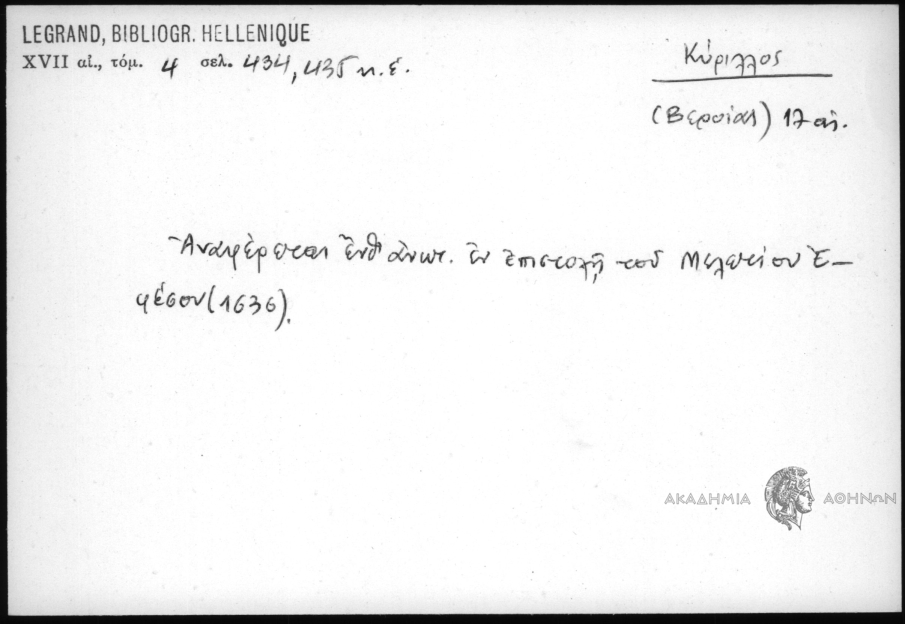 LEGRAND, BIBLIOGR. HELLENIQUE
XVII αἰ., τόμ. 4 σελ. 434, 435 κ.ἑ.
Κύριλλος
(Βεροίας) 17 αἰ.
Ἀναφέρεται ἔνθ' ἀνωτ. ἐν ἐπιστολῇ τοῦ Μελετίου Ἐ-
φέσου (1636).
ΑΚΑΔΗΜΙΑ ΑΘΗΝΩΝ